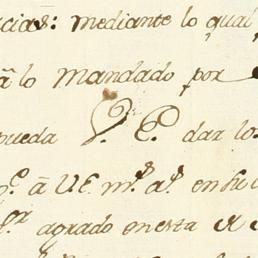 cias: mediante lo qual
â lo mandado por
pueda V. E. dar los
â U.E. m.s a.s en su
agrado en esta